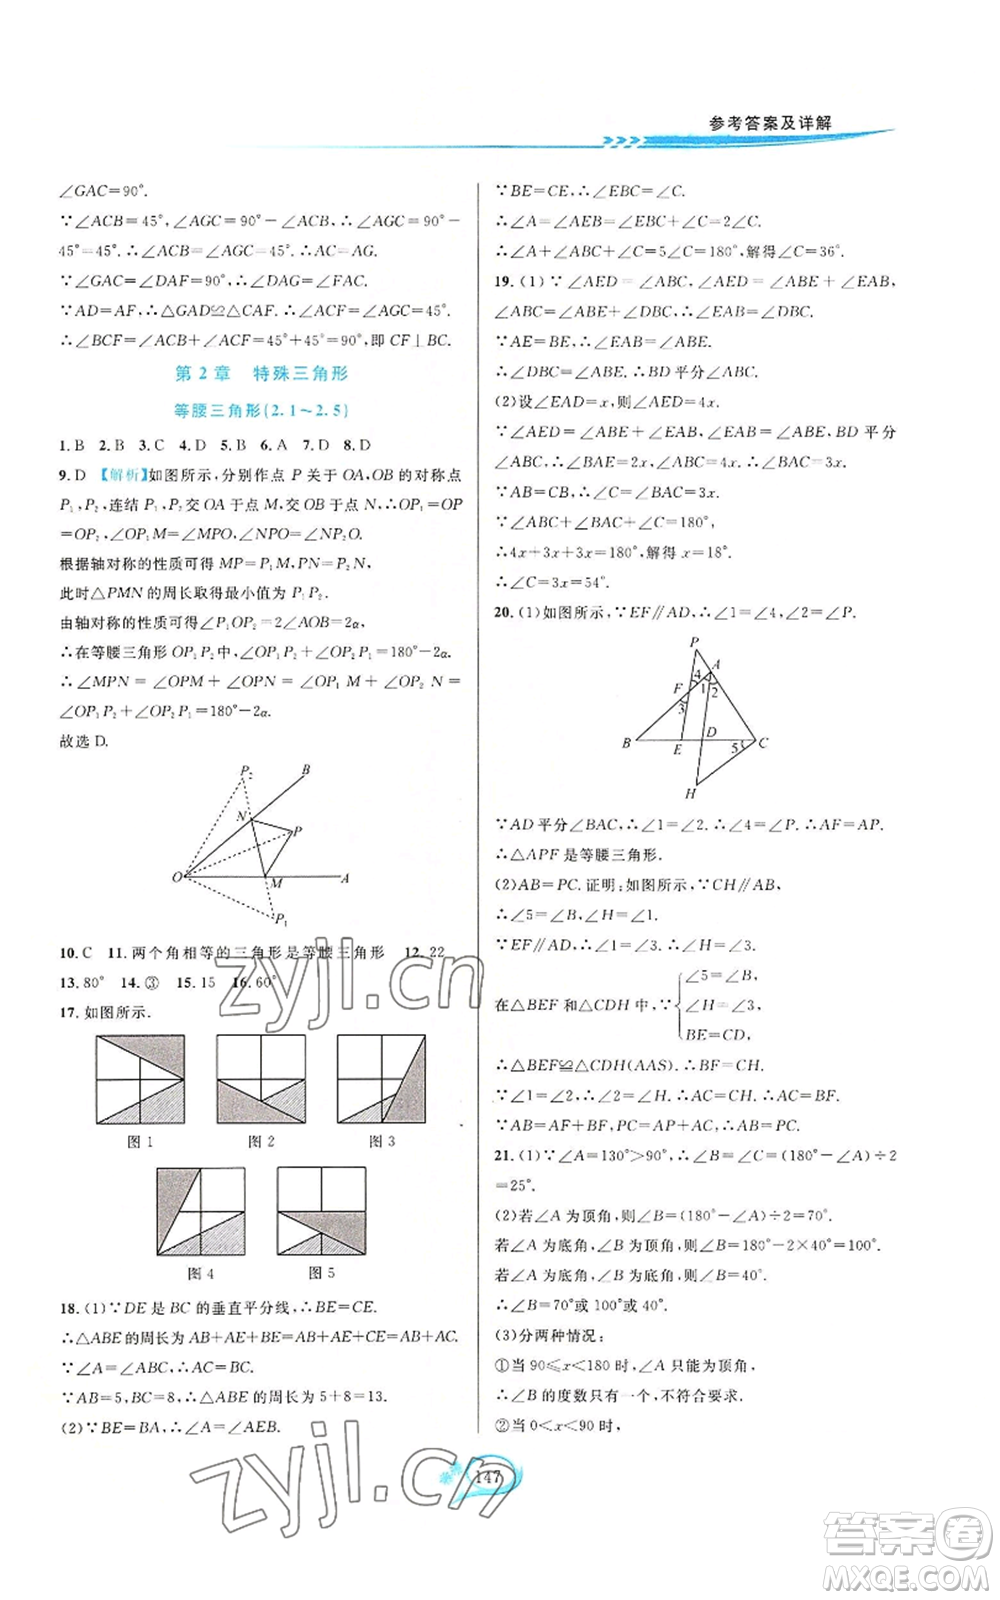 参考答案及详解
∠GAC=90°.
∵∠ACB=45°,∠AGC=90°-∠ACB,∴∠AGC=90°-
45°=45°.∴∠ACB=∠AGC=45°.∴AC=AG.
∵∠GAC=∠DAF=90°,∴∠GAD=∠CAF.
∵AD=AF,∴△GAD≌△CAF.∴∠ACF=∠AGC=45°.
∴∠BCF=∠ACB+∠ACF=45°+45°=90°,即 CF⊥BC.
第 2 章 特殊三角形
等腰三角形(2.1～2.5)
1.B 2.B 3.C 4.D 5.B 6.A 7.D 8.D
9.D 【解析】如图所示,分别作点 P 关于 OA,OB 的对称点
P₁,P₂,连结 P₁P₂ 交 OA 于点 M,交 OB 于点 N.∴OP₁=OP
=OP₂,∠OP₁M=∠MPO,∠NPO=∠NP₂O.
根据轴对称的性质可得 MP=P₁M,PN=P₂N,
此时△PMN 的周长取得最小值为 P₁P₂.
由轴对称的性质可得∠P₁OP₂=2∠AOB=2α,
∴在等腰三角形 OP₁P₂ 中,∠OP₁P₂+∠OP₂P₁=180°-2α.
∴∠MPN=∠OPM+∠OPN=∠OP₁M+∠OP₂N=
∠OP₁P₂+∠OP₂P₁=180°-2α.
故选 D.
P₂
B
N
P
O
M
A
P₁
10.C 11.两个角相等的三角形是等腰三角形 12.22
13.80° 14.③ 15.15 16.60°
17.如图所示.
图 1
图 2
图 3
图 4
图 5
18.(1)∵DE 是 BC 的垂直平分线,∴BE=CE.
∴△ABE 的周长为 AB+AE+BE=AB+AE+CE=AB+AC.
∵∠A=∠ABC,∴AC=BC.
∵AB=5,BC=8,∴△ABE 的周长为 5+8=13.
(2)∵BE=BA,∴∠A=∠AEB.
∵BE=CE,∴∠EBC=∠C.
∴∠A=∠AEB=∠EBC+∠C=2∠C.
∴∠A+∠ABC+∠C=5∠C=180°,解得∠C=36°.
19.(1)∵∠AED=∠ABC,∠AED=∠ABE+∠EAB,
∠ABC=∠ABE+∠DBC,∴∠DBC=∠EAB.
∵∠ABE=∠EAB,
∴∠DBC=∠ABE,∴BD 平分∠ABC.
(2)设∠EAD=x,则∠AED=4x.
∵∠AED=∠ABE+∠BAE,∠ABE=∠BAE,BD 平分
∠ABC,∴∠BAE=2x,∴∠BAC=3x.
∵AB=CB,∴∠C=∠BAC=3x.
∵∠ABC+∠BAC+∠C=180°,
∴4x+3x+3x=180°,解得 x=18°.
∴∠C=3x=54°.
20.(1)如图所示,∵EF∥AD,∴∠1=∠4,∠2=∠P.
P
A
4
1
2
F
3
B
E
D
5
C
H
∵AD 平分∠BAC,∴∠1=∠2.∴∠4=∠P.∴AF=AP.
∴△APF 是等腰三角形.
(2)AB=PC.证明:如图所示,∵CH∥AB,
∴∠5=∠B,∠H=∠1.
∵EF∥AD,∴∠1=∠3.∴∠H=∠3.
在△BEF 和△CDH 中,∵{∠5=∠B,
∠H=∠3,
BE=CD,
∴△BEF≌△CDH(AAS).∴BF=CH.
∵AD 平分∠BAC,∴∠1=∠2.∴∠2=∠H.∴AC=CH.∴AC=BF.
∵AB=AF+BF,PC=AP+AC,∴AB=PC.
21.(1)∵∠A=130°>90°,∴∠B=∠C=(180°-∠A)÷2
=25°.
(2)若∠A 为顶角,则∠B=(180°-∠A)÷2=70°.
若∠A 为底角,∠B 为顶角,则∠B=180°-2×40°=100°.
若∠A 为底角,∠B 为底角,则∠B=40°.
∴∠B=70°或 100°或 40°.
(3)分两种情况:
①当 90≤x<180 时,∠A 只能为顶角,
∴∠B 的度数只有一个,不符合要求.
②当 0<x<90 时,
147
zyjl.cn
zyjl.cn
答案圈
MXQE.COM